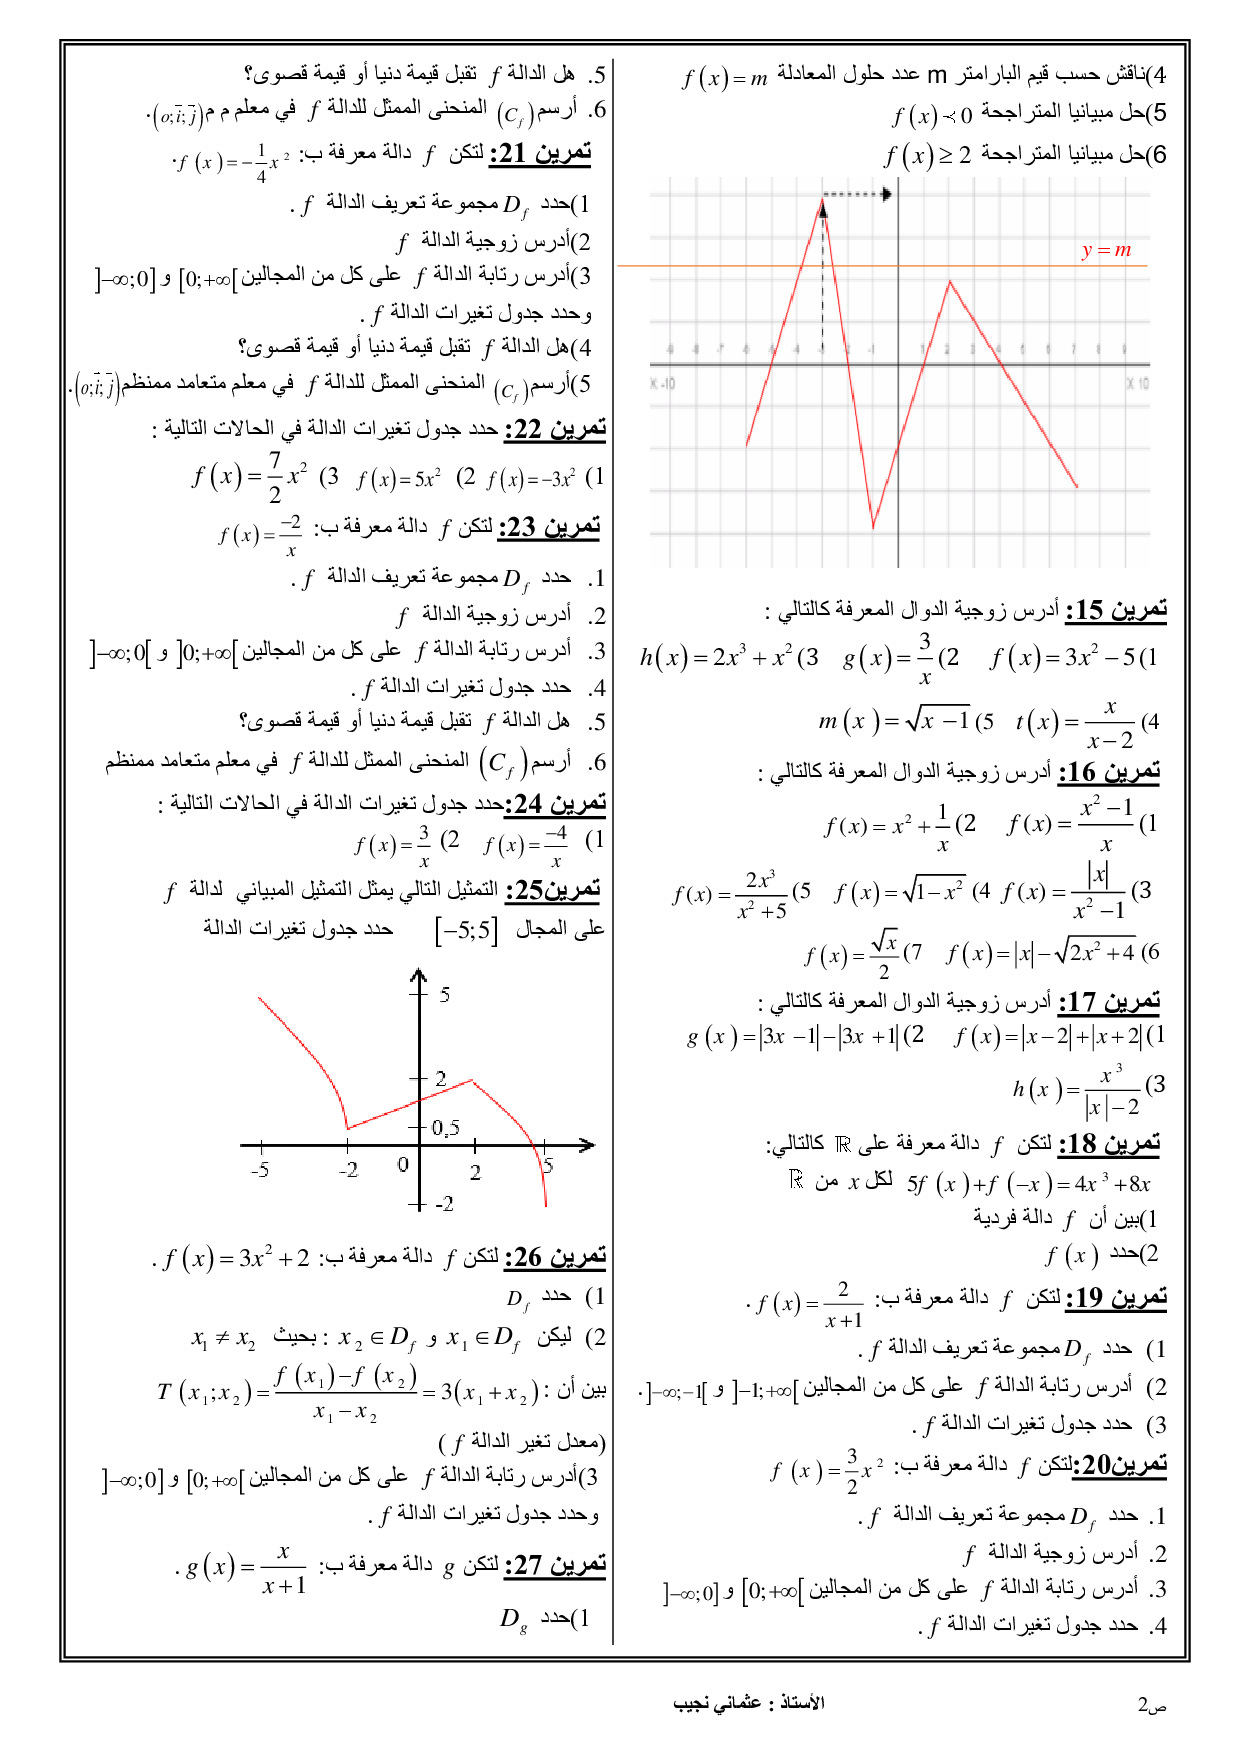 4)ناقش حسب قيم البارامتر m عدد حلول المعادلة f(x)=m
5)حل مبيانيا المتراجحة f(x)≺0
6)حل مبيانيا المتراجحة f(x)≥2
y = m
X -10
X 10
تمرين 15: أدرس زوجية الدوال المعرفة كالتالي :
1) f(x)=3x²−5 2) g(x)=3/x 3) h(x)=2x³+x²
4) t(x)=x/(x−2) 5) m(x)=√(x−1)
تمرين 16: أدرس زوجية الدوال المعرفة كالتالي :
1) f(x)=(x²−1)/x 2) f(x)=x²+1/x
3) f(x)=|x|/(x²−1) 4) f(x)=√(1−x²) 5) f(x)=2x³/(x²+5)
6) f(x)=|x|−√(2x²+4) 7) f(x)=√x/2
تمرين 17: أدرس زوجية الدوال المعرفة كالتالي :
1) f(x)=|x−2|+|x+2| 2) g(x)=|3x−1|−|3x+1|
3) h(x)=x³/(|x|−2)
تمرين 18: لتكن f دالة معرفة على ℝ كالتالي:
5f(x)+f(−x)=4x³+8x لكل x من ℝ
1)بين أن f دالة فردية
2)حدد f(x)
تمرين 19: لتكن f دالة معرفة ب: f(x)=2/(x+1) .
1) حدد D_f مجموعة تعريف الدالة f .
2) أدرس رتابة الدالة f على كل من المجالين ]−1;+∞[ و ]−∞;−1[ .
3) حدد جدول تغيرات الدالة f .
تمرين20:لتكن f دالة معرفة ب: f(x)=3/2 x²
1. حدد D_f مجموعة تعريف الدالة f .
2. أدرس زوجية الدالة f
3. أدرس رتابة الدالة f على كل من المجالين [0;+∞[ و ]−∞;0]
4. حدد جدول تغيرات الدالة f .
5. هل الدالة f تقبل قيمة دنيا أو قيمة قصوى؟
6. أرسم (C_f) المنحنى الممثل للدالة f في معلم م م (o;i⃗;j⃗).
تمرين 21: لتكن f دالة معرفة ب: f(x)=−1/4 x² .
1)حدد D_f مجموعة تعريف الدالة f .
2)أدرس زوجية الدالة f
3)أدرس رتابة الدالة f على كل من المجالين [0;+∞[ و ]−∞;0]
وحدد جدول تغيرات الدالة f .
4)هل الدالة f تقبل قيمة دنيا أو قيمة قصوى؟
5)أرسم (C_f) المنحنى الممثل للدالة f في معلم متعامد ممنظم (o;i⃗;j⃗).
تمرين 22: حدد جدول تغيرات الدالة في الحالات التالية :
1) f(x)=−3x² 2) f(x)=5x² 3) f(x)=7/2 x²
تمرين 23: لتكن f دالة معرفة ب: f(x)=−2/x
1. حدد D_f مجموعة تعريف الدالة f .
2. أدرس زوجية الدالة f
3. أدرس رتابة الدالة f على كل من المجالين ]0;+∞[ و ]−∞;0[
4. حدد جدول تغيرات الدالة f .
5. هل الدالة f تقبل قيمة دنيا أو قيمة قصوى؟
6. أرسم (C_f) المنحنى الممثل للدالة f في معلم متعامد ممنظم
تمرين 24:حدد جدول تغيرات الدالة في الحالات التالية :
1) f(x)=−4/x 2) f(x)=3/x
تمرين25: التمثيل التالي يمثل التمثيل المبياني لدالة f
على المجال [−5;5] حدد جدول تغيرات الدالة
5
2
0,5
-5 -2 0 2 5
-2
تمرين 26: لتكن f دالة معرفة ب: f(x)=3x²+2 .
1) حدد D_f
2) ليكن x₁∈D_f و x₂∈D_f : بحيث x₁≠x₂
بين أن : T(x₁;x₂)=(f(x₁)−f(x₂))/(x₁−x₂)=3(x₁+x₂)
(معدل تغير الدالة f )
3)أدرس رتابة الدالة f على كل من المجالين [0;+∞[ و ]−∞;0]
وحدد جدول تغيرات الدالة f .
تمرين 27: لتكن g دالة معرفة ب: g(x)=x/(x+1) .
1)حدد D_g
ص2
الأستاذ : عثماني نجيب